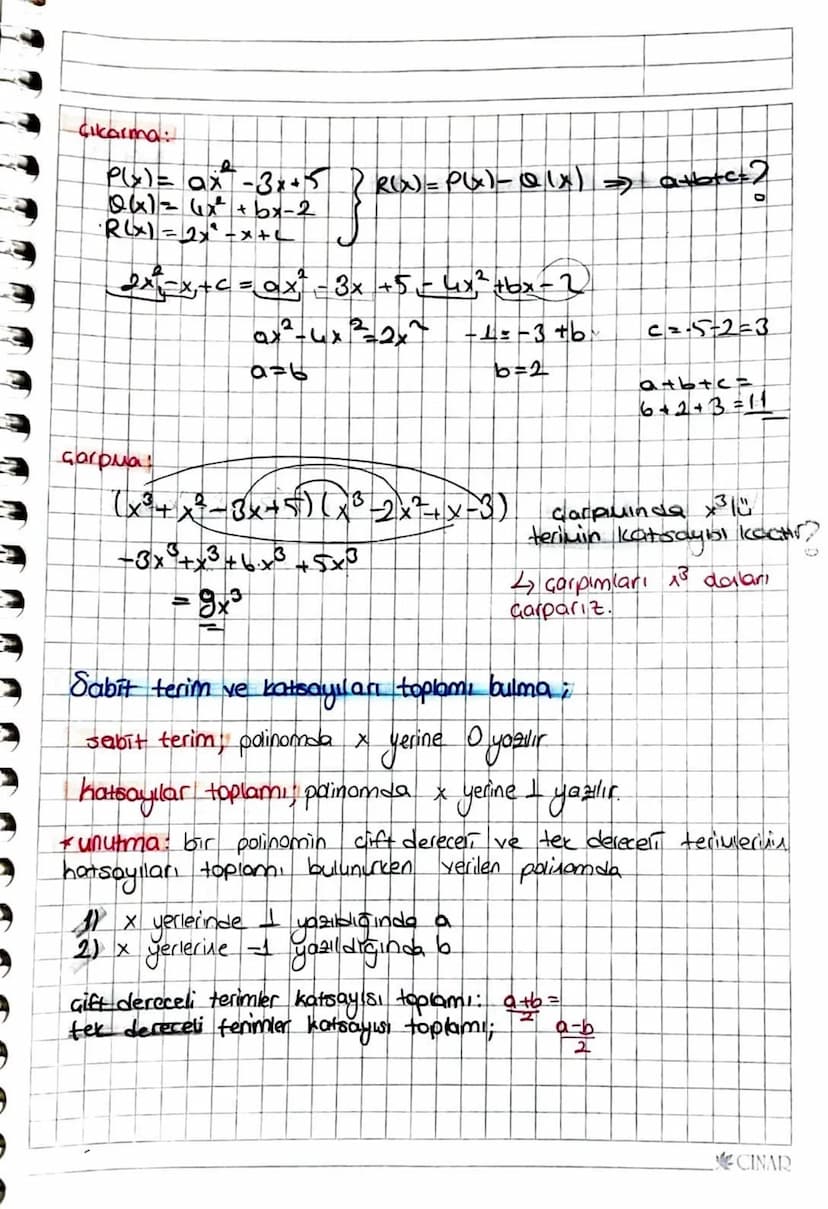 Çıkarma:
P(x) = ax² - 3x + 5
Q(x) = 4x² + bx - 2 } R(x) = P(x) - Q(x) ⇒ a+b+c = ?
R(x) = 2x² - x + c
2x² - x + c = ax² - 3x + 5 - 4x² + bx - 2
ax² - 4x² = 2x² -1 = -3 + b c = 5 - 2 = 3
a = 6 b = 2
a + b + c =
6 + 2 + 3 = 11
Çarpma:
(x³ + x² - 3x + 5) (x³ - 2x² + x - 3) çarpımında x³ lü
terimin katsayısı kaçtır?
-3x³ + x³ + 6.x³ + 5x³
↳ çarpımları x³ olanları
= 9x³
çarparız.
Sabit terim ve katsayıları toplamı bulma;
sabit terim; polinomda x yerine 0 yazılır
katsayılar toplamı; polinomda x yerine 1 yazılır.
* unutma: bir polinomin çift dereceli ve tek dereceli terimlerinin
katsayıları toplamı bulunurken verilen polinomda
1) x yerlerinde 1 yazıldığında a
2) x yerlerine -1 yazıldığında b
Çift dereceli terimler katsayısı toplamı: a+b/2 =
tek dereceli terimler katsayısı toplamı; a-b/2
ÇINAR